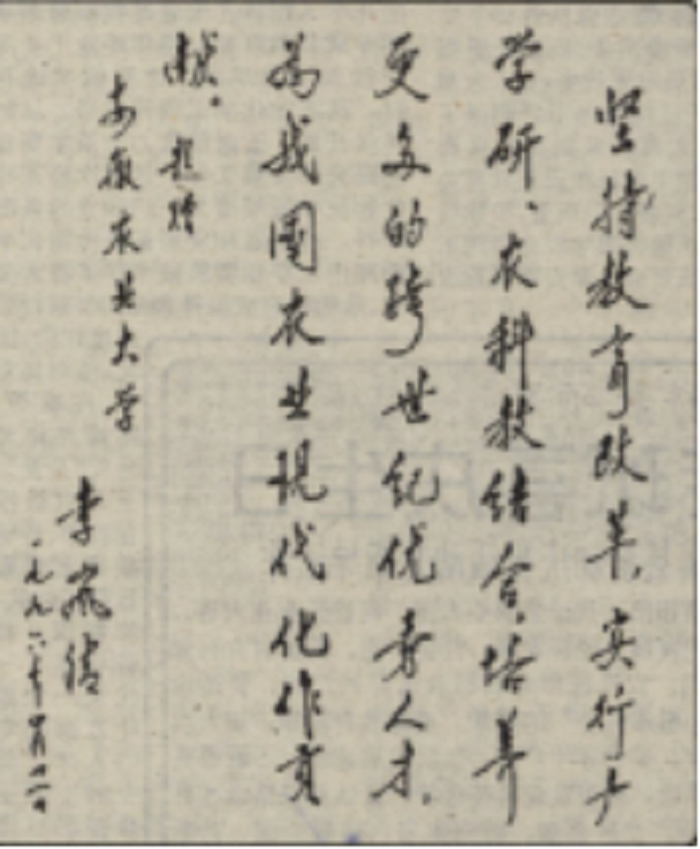 坚持教育改革,实行产
学研、农科教结合,培养
更多的跨世纪优秀人才,
为我国农业现代化作贡
献。题赠
安徽农业大学
李岚清
一九九六年四月